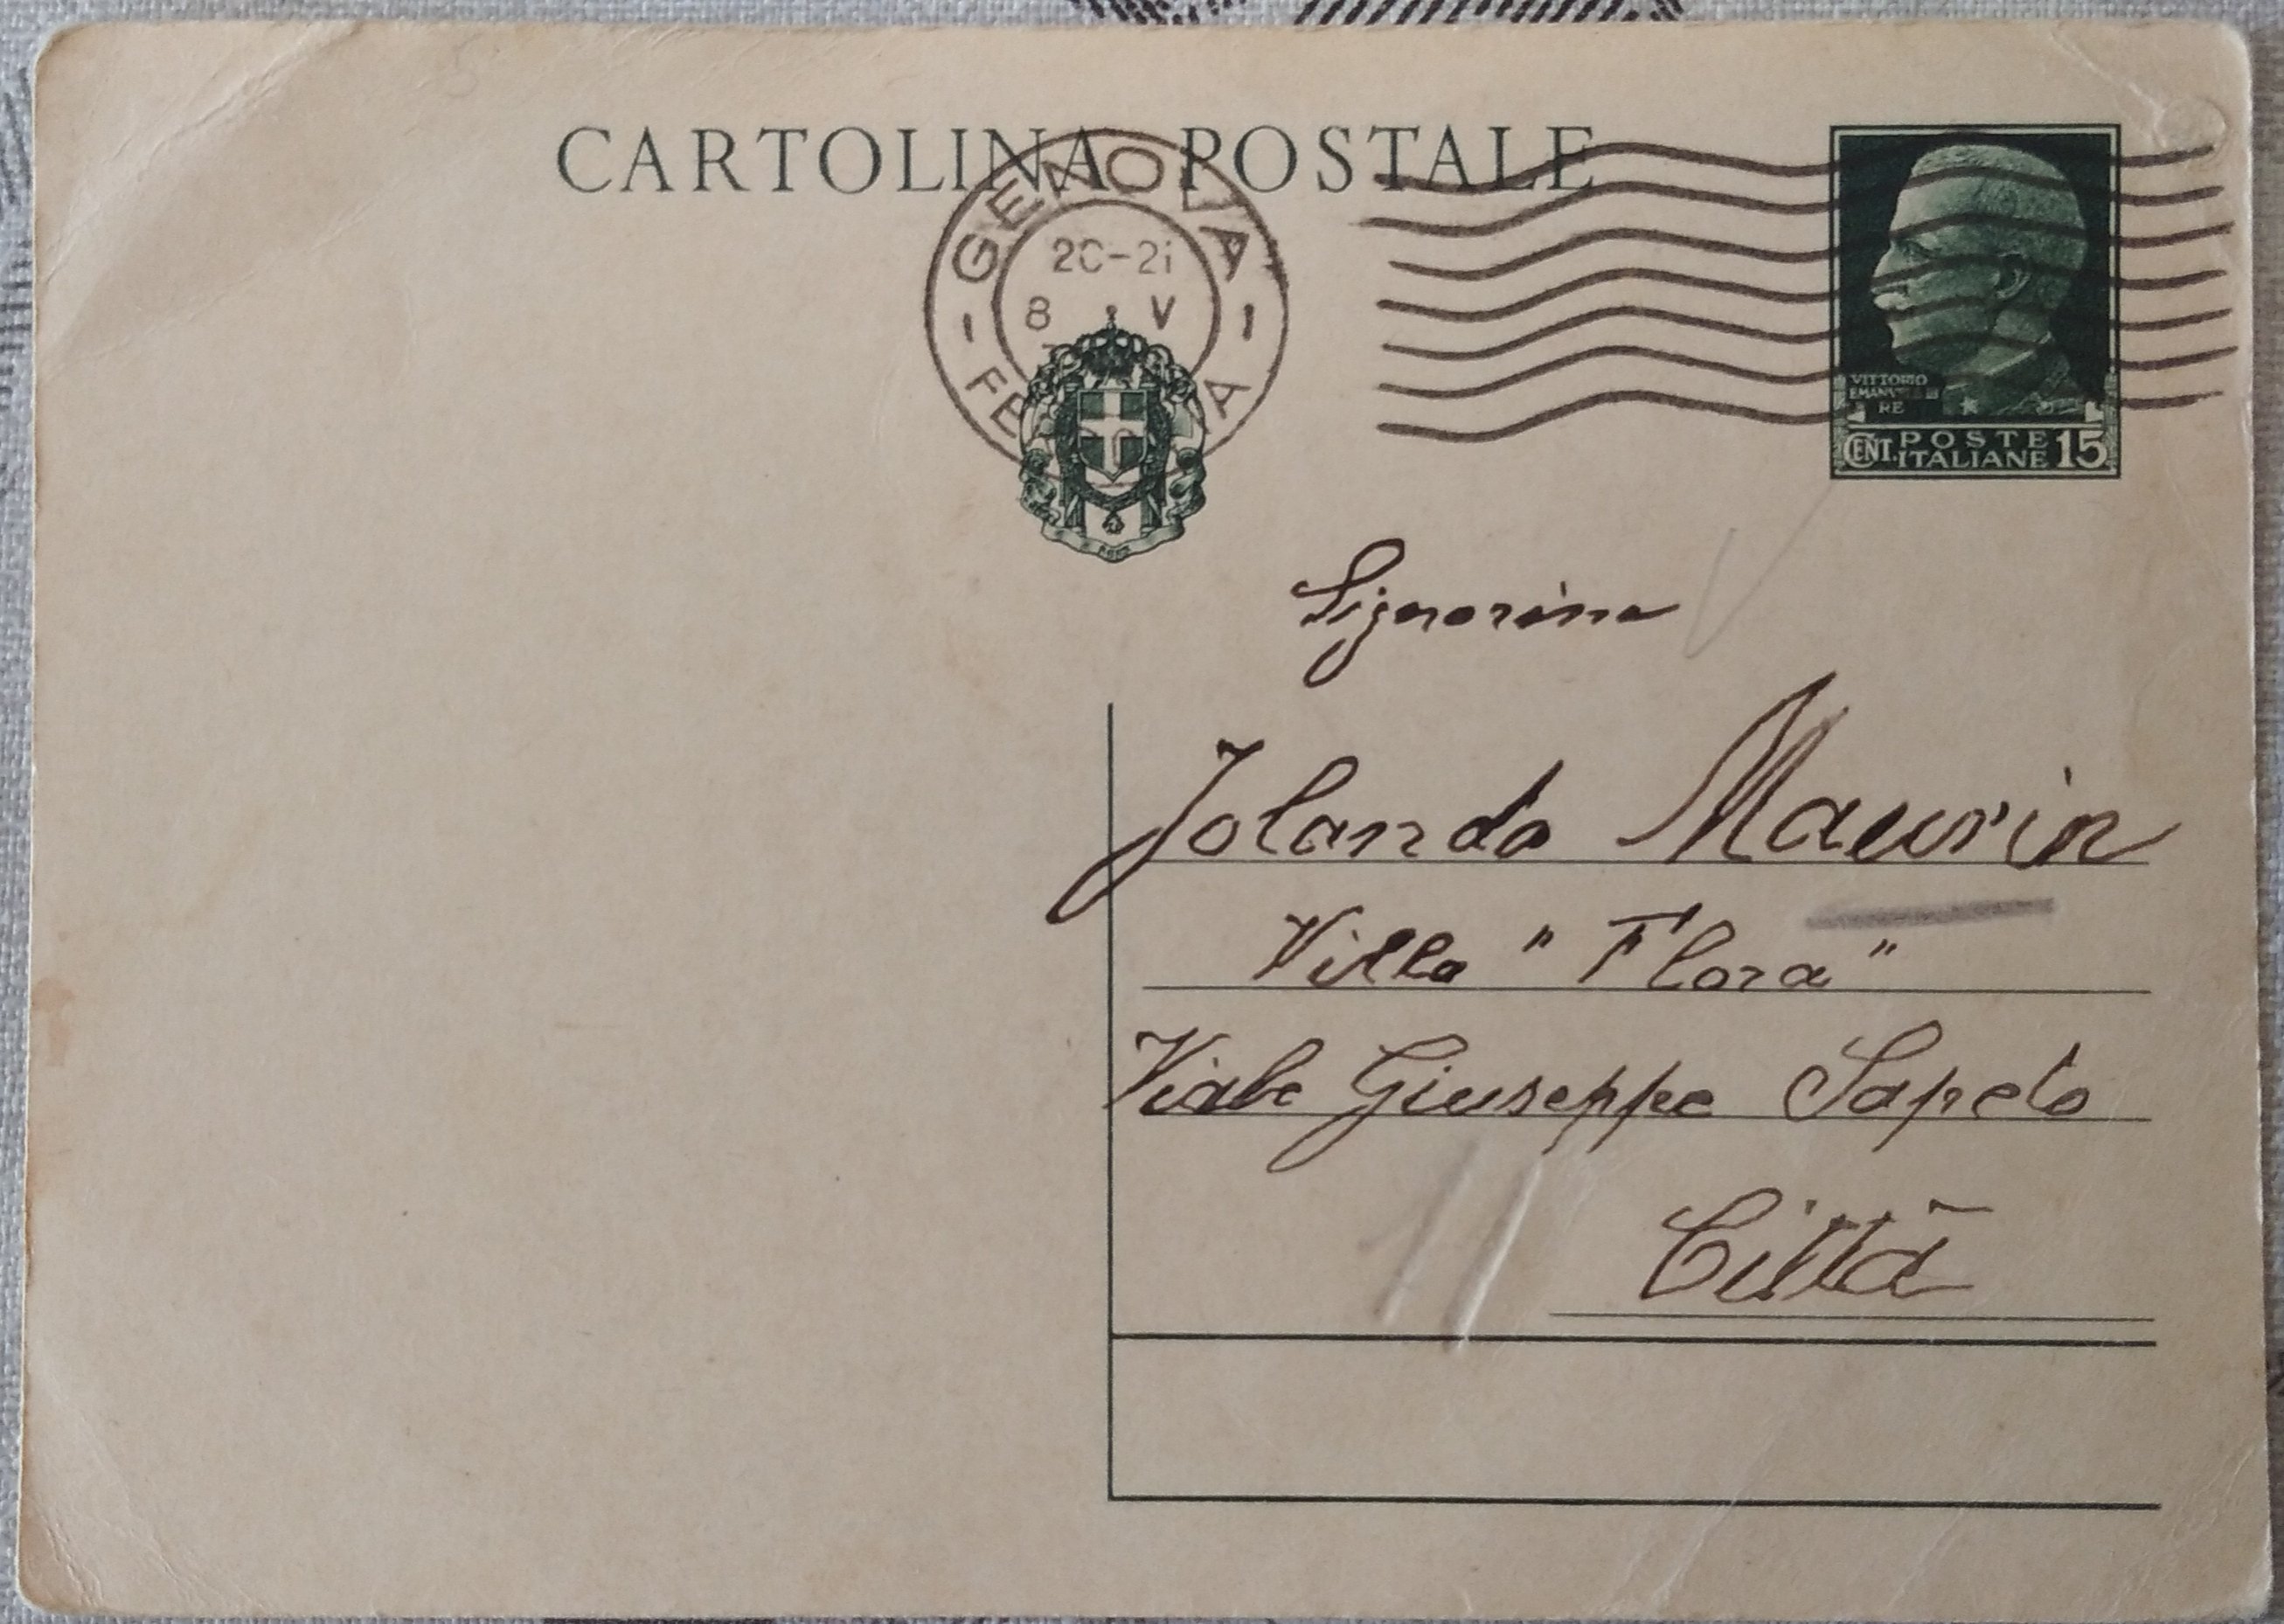 CARTOLINA POSTALE
GENOVA
20-21
8 V
VITTORIO
EMANVELE III
RE
CENT. POSTE
ITALIANE 15
Signorina
Jolanda Maurin
Villa " Flora "
Viale Giuseppe Sapeto
Città